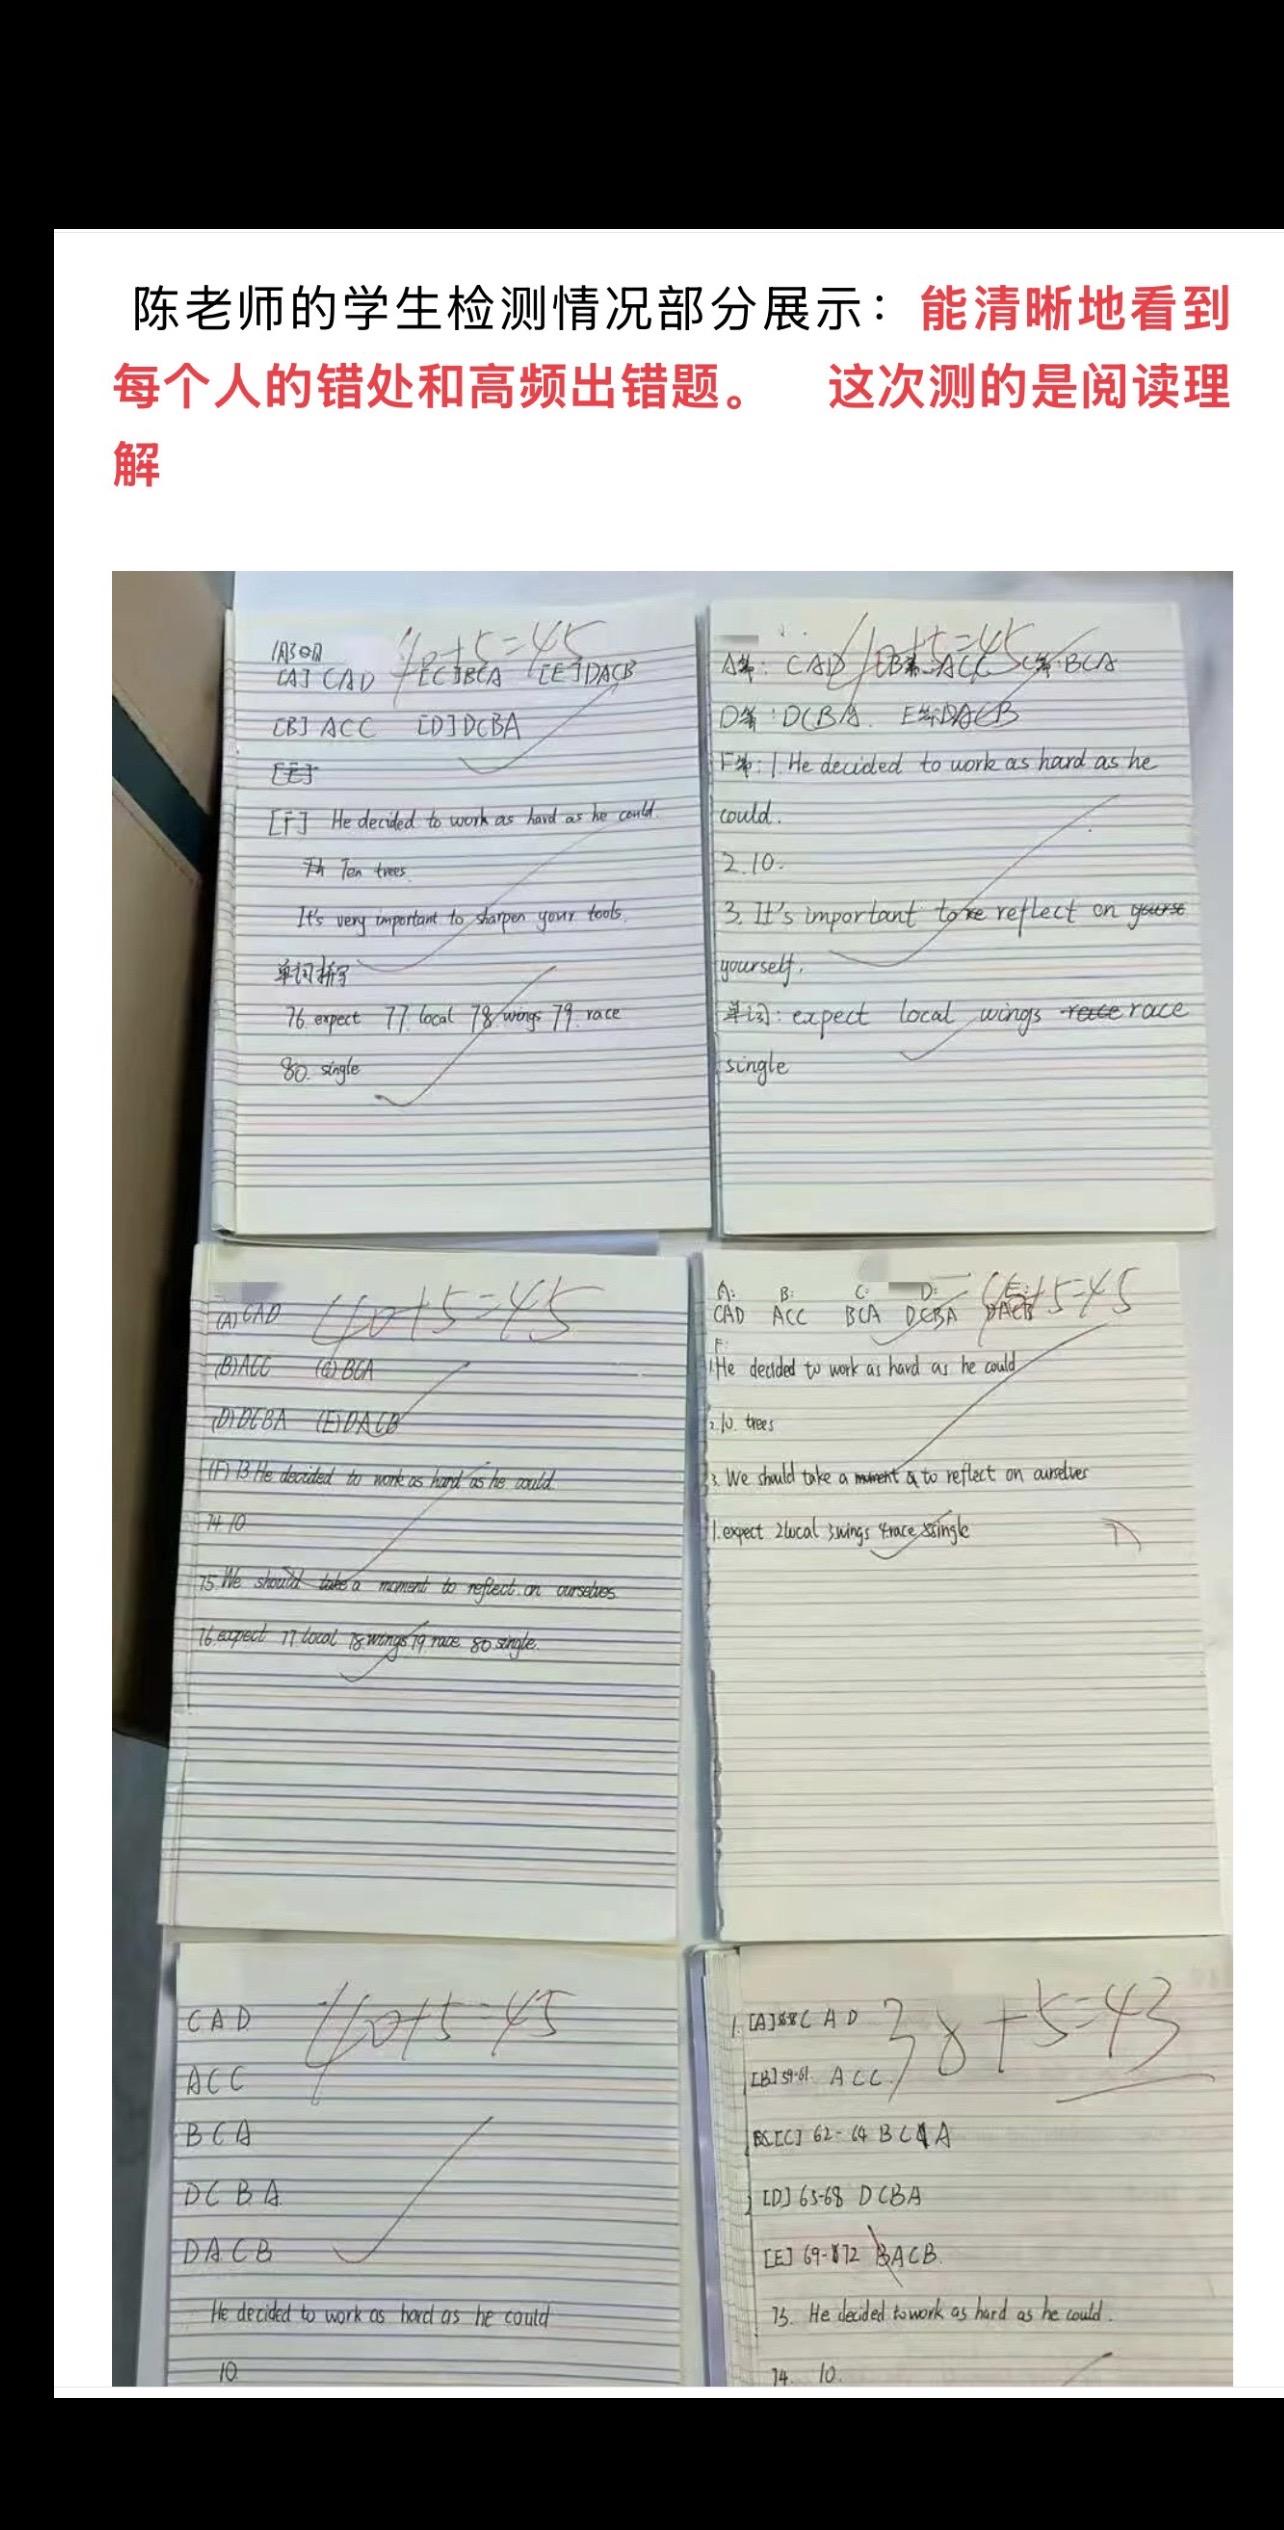 陈老师的学生检测情况部分展示：能清晰地看到
每个人的错处和高频出错题。 这次测的是阅读理
解
40+5=45
[A] CAD [C]BCA [E]DACB
[B] ACC [D]DCBA
[E]
[F] He decided to work as hard as he could.
Ten trees.
It's very important to sharpen your tools.
单词拼写
76 expect 77. local 78 wings 79. race
80. single
40+5=45
A篇: CAD B篇: ACC C篇: BCA
D篇: DCBA. E篇:DACB
F篇: 1. He decided to work as hard as he
could.
2. 10.
3. It's important to re reflect on yourse
yourself.
单词: expect local wings race race
single
40+5=45
(A) CAD
(B) ACC (C) BCA
(D) DCBA (E) DACB
(F) 73 He decided to work as hard as he could.
74 10
75. We should take a moment to reflect on ourselves
76. expect 77 local 78 wings 79. race 80 single.
40+5=45
A: B: C: D: E:
CAD ACC BCA DCBA DACB
F:
1. He decided to work as hard as he could
2. 10. trees
3. We should take a moment to reflect on ourselves
1. expect 2 local 3 wings 4 race 5 single
40+5=45
CAD
ACC
BCA
DCBA
DACB
He decided to work as hard as he could
10
38+5=43
1. [A] C A D
[B] 59-61. ACC
[C] 62-64 BCA
[D] 65-68 DCBA
[E] 69-72 BACB.
73. He decided to work as hard as he could.
74. 10.